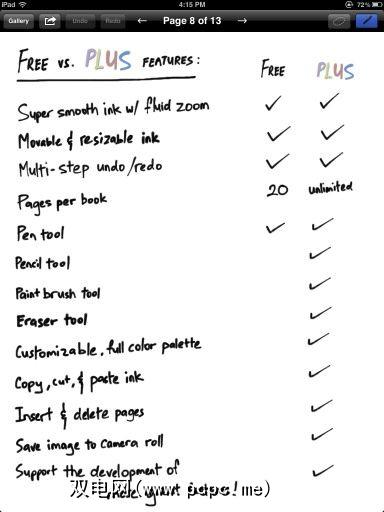 iPad 4:15 PM 72%
Gallery Undo Redo ← Page 8 of 13 →
FREE vs. PLUS FEATURES:
FREE PLUS
Super smooth ink w/ fluid zoom ✓ ✓
Movable & resizable ink ✓ ✓
Multi-step undo/redo ✓ ✓
Pages per book 20 unlimited
Pen tool ✓ ✓
Pencil tool ✓
Paint brush tool ✓
Eraser tool ✓
Customizable, full color palette ✓
Copy, cut, & paste ink ✓
Insert & delete pages ✓
Save image to camera roll ✓
Support the development of ✓
双电网(www.pdpc.me)